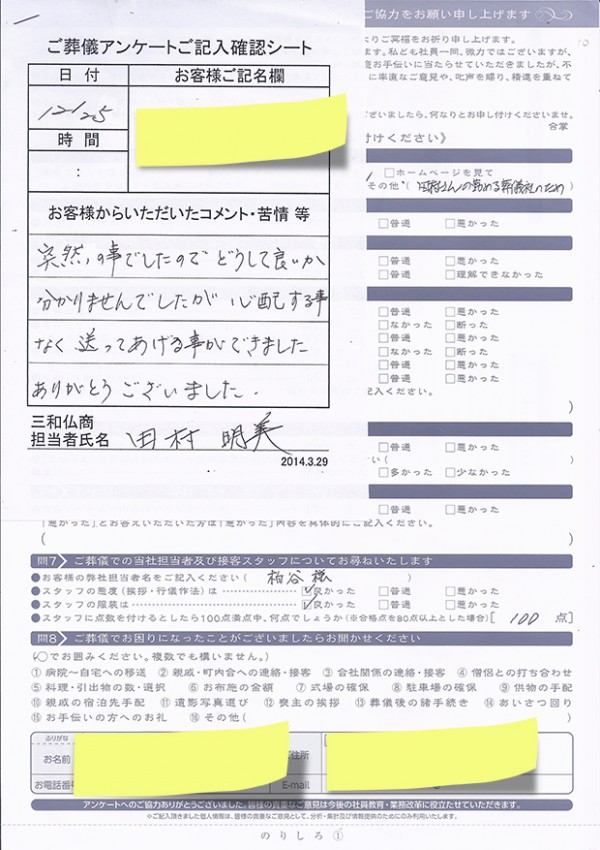 ご協力をお願い申し上げます
ご葬儀アンケートご記入確認シート
日付
お客様ご記名欄
12/25
時間
:
お客様からいただいたコメント・苦情 等
突然の事でしたので どうして良いか
分かりませんでしたが 心配する事
なく 送ってあげる事ができました
ありがとう ございました.
三和仏商
担当者氏名 田村 明美
2014.3.29
よりご冥福をお祈り申し上げます。
ます。私ども社員一同、微力ではございますが、
お手伝いに当たらせていただきましたが、不
に率直なご意見や、叱声を賜り、精進を重ねて
ございましたら、何なりとお申し付けくださいませ。
合掌
付けください》
□ホームページを見て
その他(
□普通 □悪かった
□普通 □悪かった
□普通 □悪かった
□普通 □理解できなかった
□普通 □悪かった
□なかった □断った
□普通 □悪かった
□なかった □断った
□普通 □悪かった
□普通 □悪かった
記入ください。
)
□普通 □悪かった
□多かった □少なかった
□普通 □悪かった
「悪かった」とお答えいただいた方は「悪かった」内容を具体的にご記入ください。
( )
問7 ご葬儀での当社担当者及び接客スタッフについてお尋ねいたします
●お客様の弊社担当者名をご記入ください( 柏谷様 )
●スタッフの態度(挨拶・行儀作法)は ☑良かった □普通 □悪かった
●スタッフの服装は ☑良かった □普通 □悪かった
●スタッフに点数を付けるとしたら100点満点中、何点でしょうか(※合格点を80点以上とした場合)[ 100 点]
問8 ご葬儀でお困りになったことがございましたらお聞かせください
(○でお囲みください。複数でも構いません。)
①病院~自宅への移送 ②親戚・町内会への連絡・接客 ③会社関係の連絡・接客 ④僧侶との打ち合わせ
⑤料理・引出物の数・選択 ⑥お布施の金額 ⑦式場の確保 ⑧駐車場の確保 ⑨供物の手配
⑩親戚の宿泊先手配 ⑪遺影写真選び ⑫喪主の挨拶 ⑬葬儀後の諸手続き ⑭あいさつ回り
⑮お手伝いの方へのお礼 ⑯その他( )
ふりがな
お名前
ご住所
お電話番号
E-mail
アンケートへのご協力ありがとうございました。皆様の貴重なご意見は今後の社員教育・業務改革に役立たせていただきます。
※ご記入頂きました個人情報は、皆様の貴重なご意見として、分析・集計及び情報提供のためにのみ利用いたします。
のりしろ①